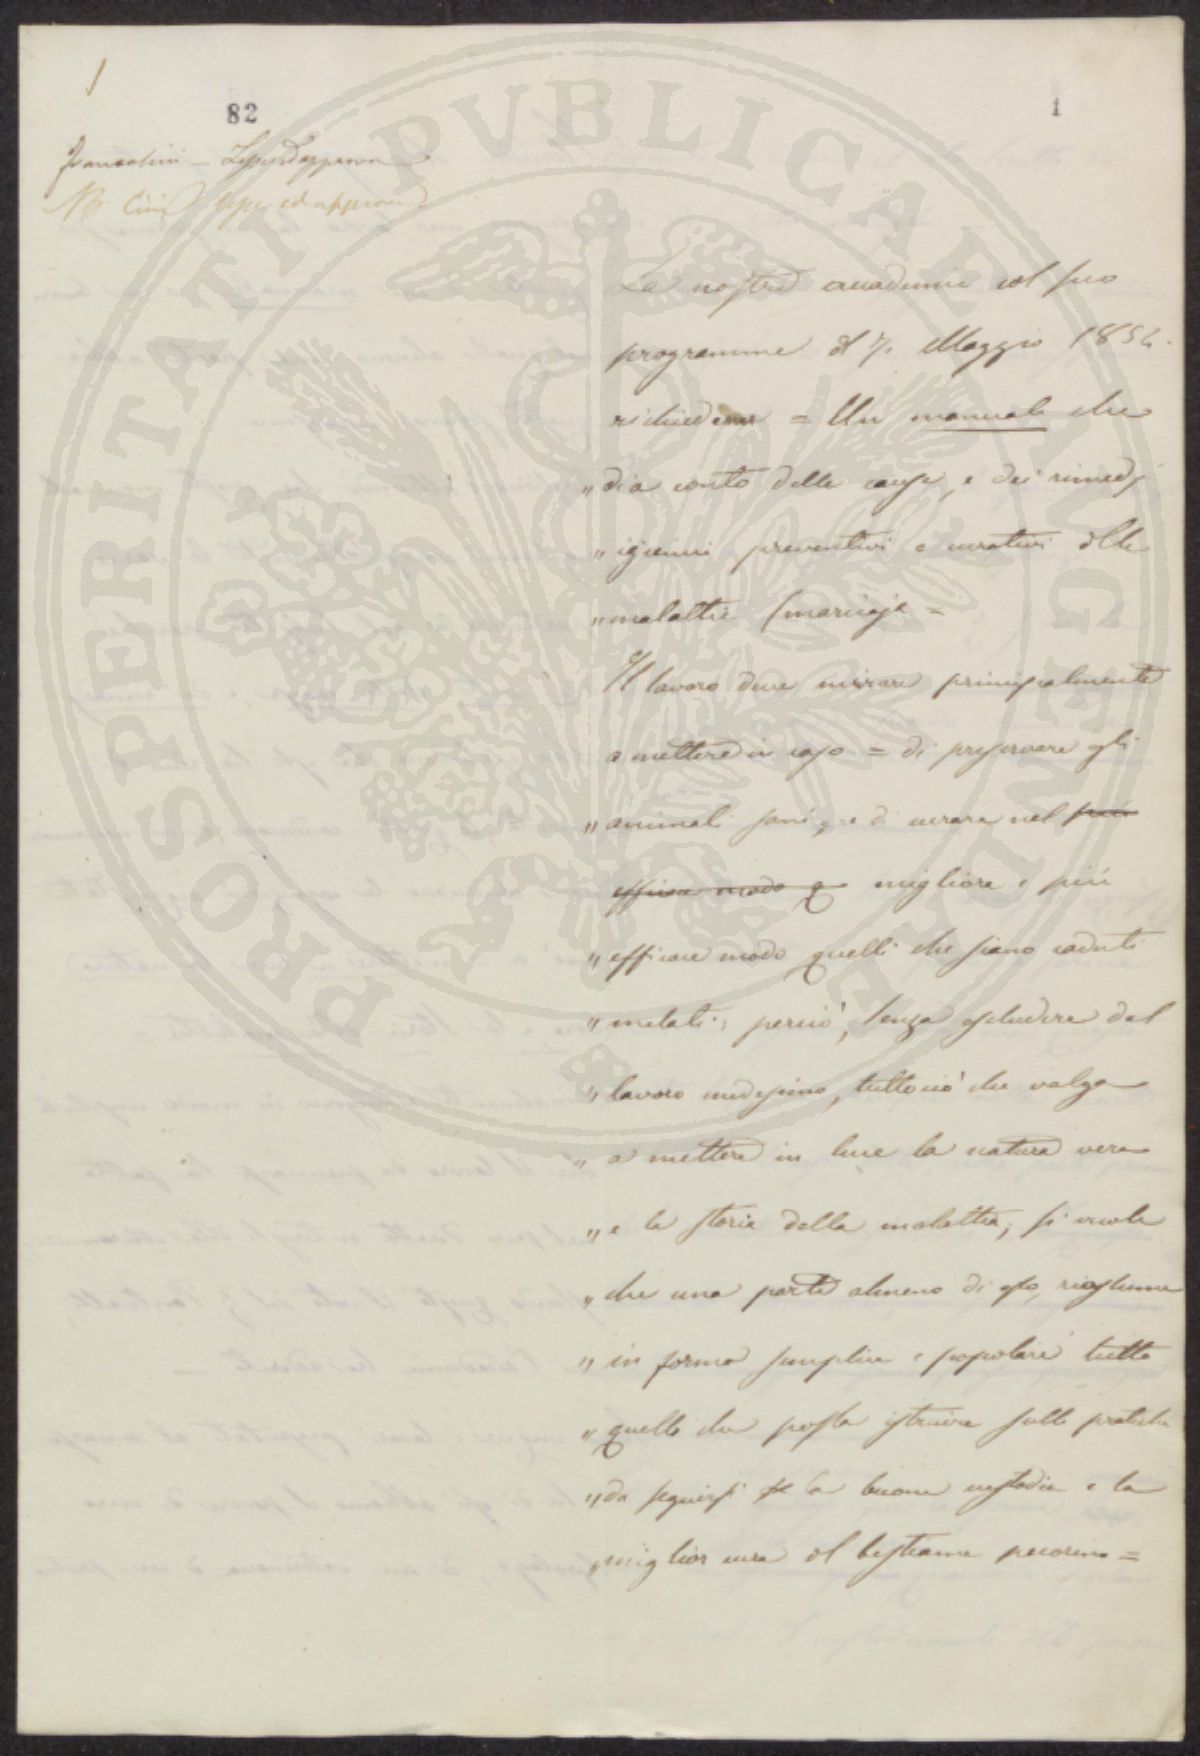 82
1
Francolini – Lesse ed approva
La nostra accademia col suo
programma del 7. Maggio 1854.
richiedeva = Un manuale che
„ dia conto delle cause, e dei rimedj
„ igienici preventivi e curativi delle
„ malattie
Il lavoro deve mirare principalmente
a mettere in caso = di preservare gli
„ animali sani, e di curare nel più
efficace modo q migliore e più
„ efficace modo quelli che siano caduti
„ malati; perciò, senza escludere dal
„ lavoro medesimo, tuttociò che valga
„ a mettere in luce la natura vera
„ e la storia della malattia, si vuole
„ che una parte almeno di esso, riassuma
„ in forma semplice e popolare tutto
„ quello che possa istruire sulle pratiche
„ da seguirsi per la buona custodia e la
„ miglior cura del bestiame pecorino =
PROSPERITATI PUBLICAE AUGENDAE